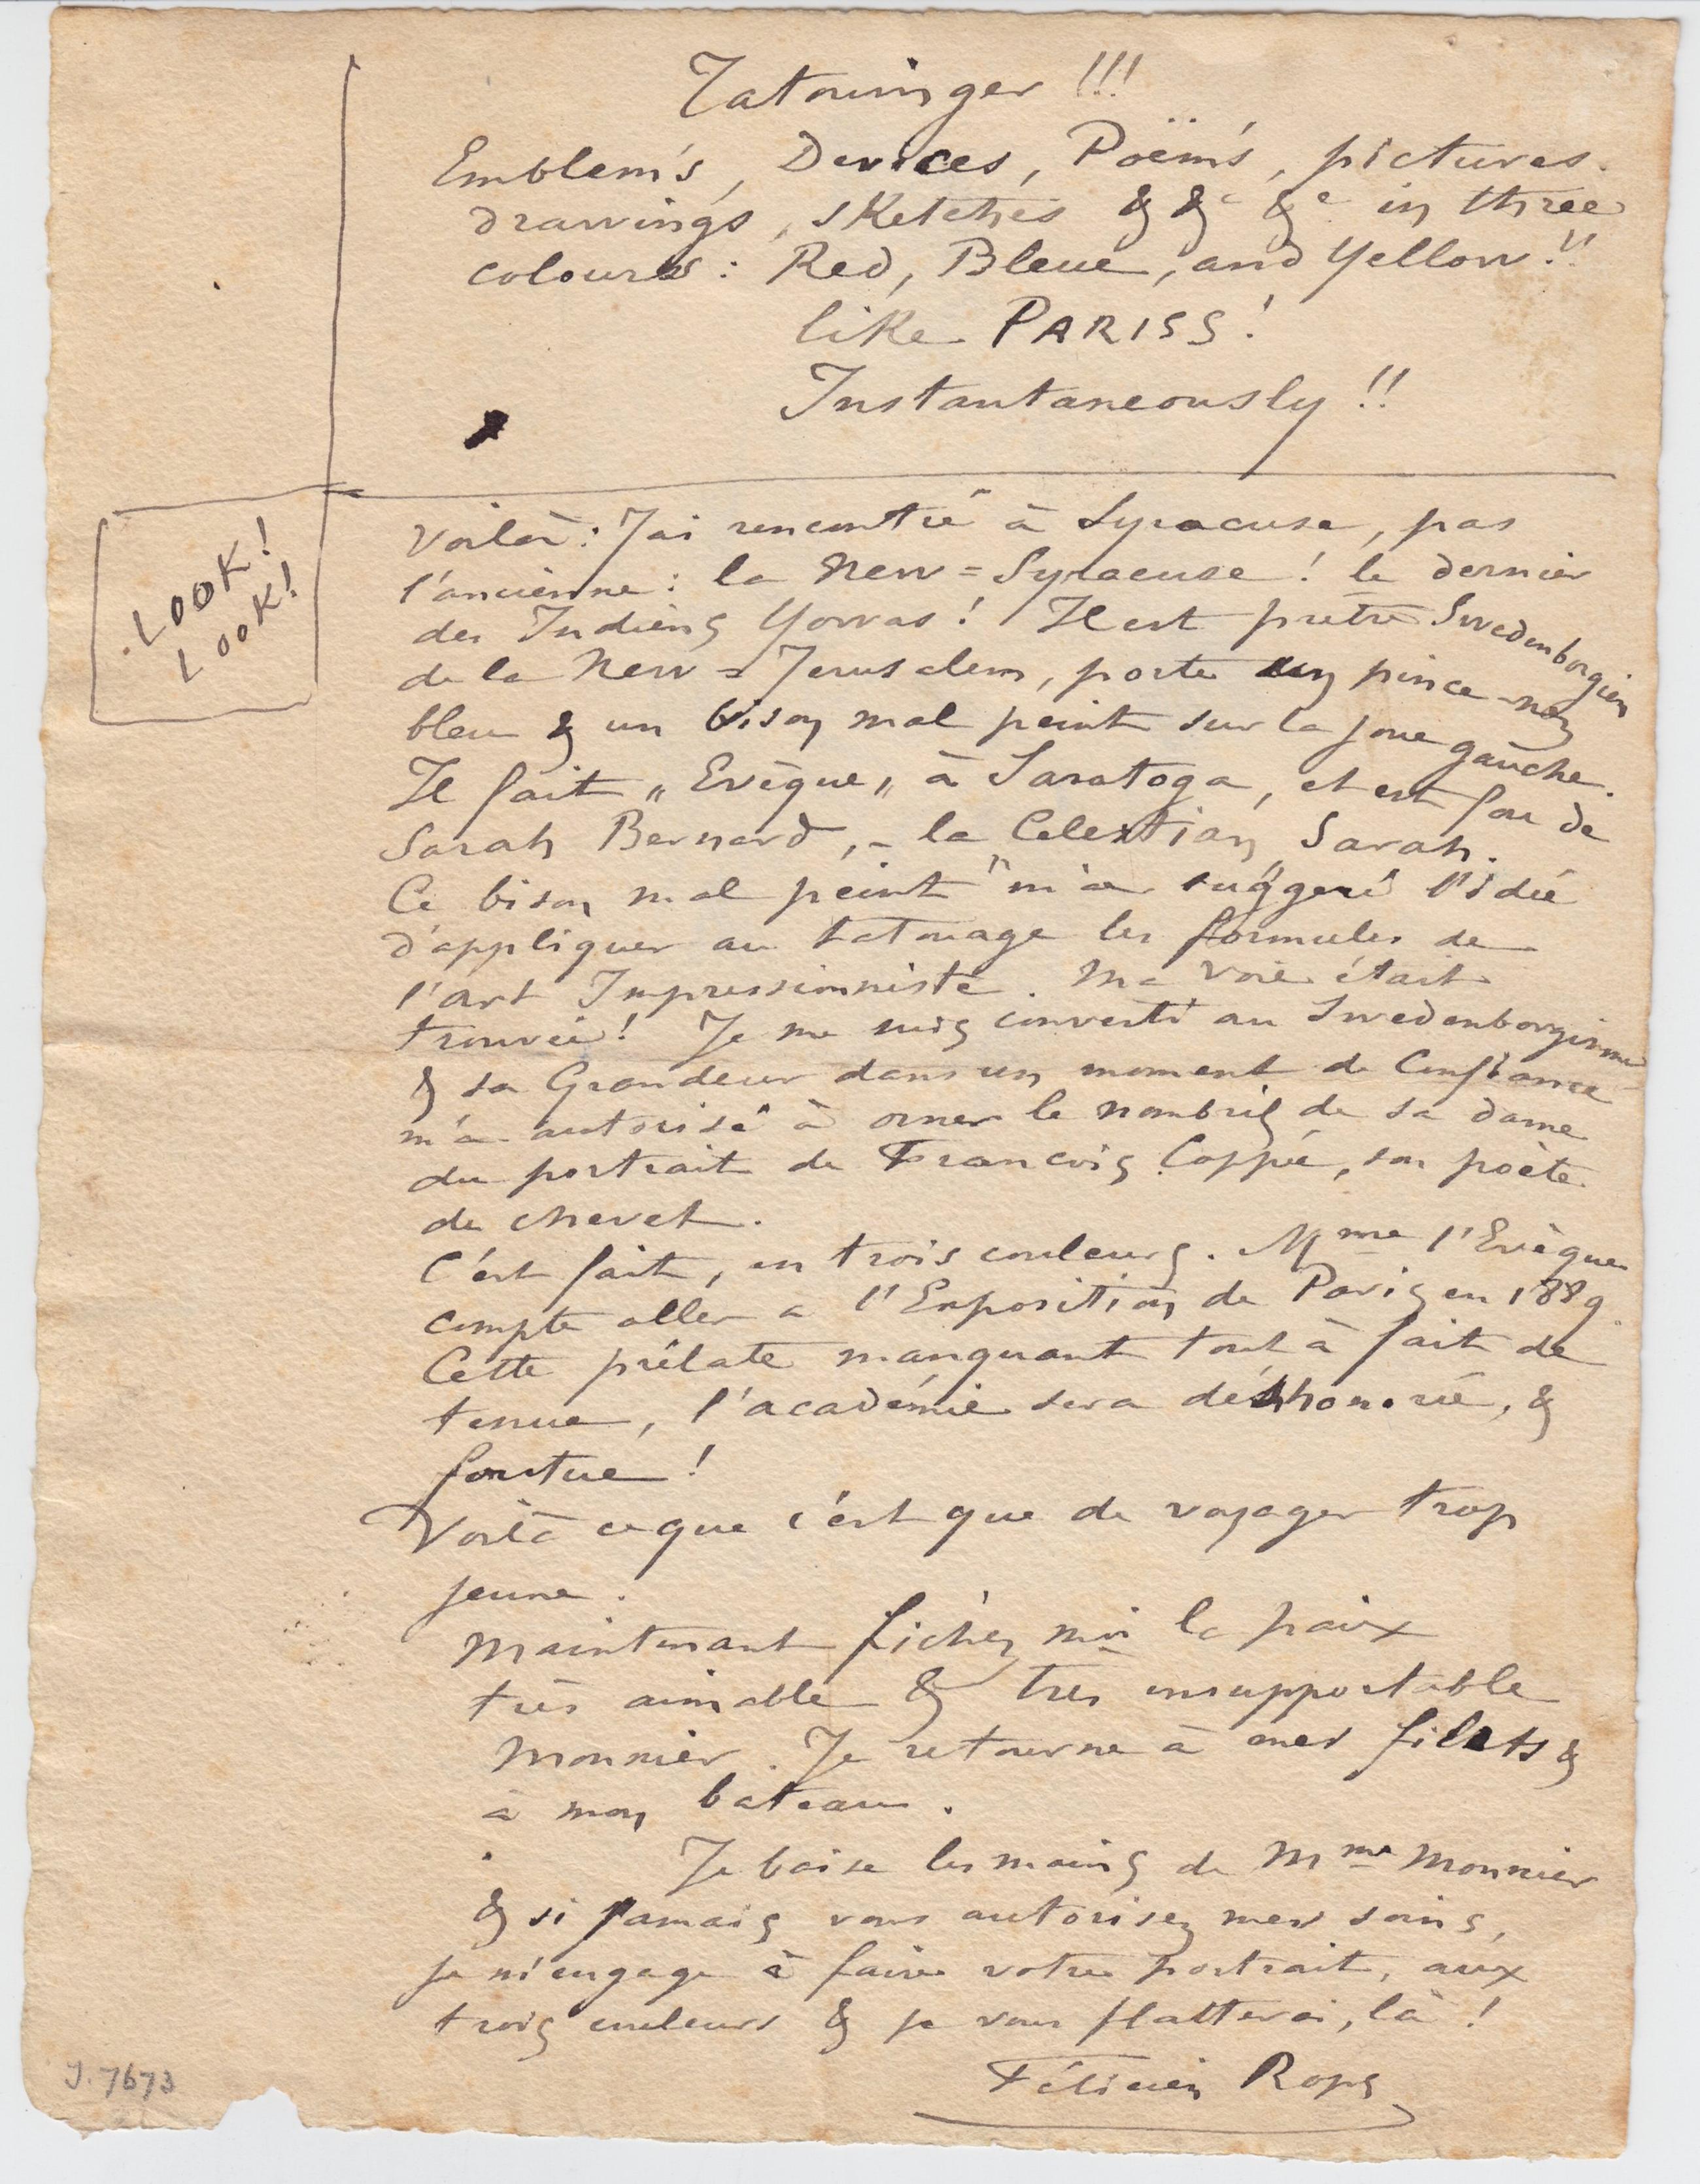 Tatouinger !!!
Emblem's, Devices, Poëm's, pictures.
drawings, sketches & &c &c in three
colours : Red, Bleue, and Yellow !!
like PARISS !
Instantaneously !!
LOOK !
LOOK !
Voilà : J'ai rencontré à Syracuse, pas
l'ancienne : la New = Syracuse ! le dernier
des Indiens Yowas ! Il est prêtre Swedenborgien
de la New = Jerusalem, porte un pince-nez
bleu & un bison mal peint sur la joue gauche.
Il fait „ Evèque „ à Saratoga, et est fou de
Sarah Bernard, - la „ Celestian „ Sarah.
Ce bison mal peint m'a suggeré l'idée
d'appliquer au tatouage les formules de
l'art Impressionniste. Ma voie était
trouvée ! Je me suis converti au Swedenborgisme
& sa Grandeur dans un moment de Confiance
m'a autorisé à orner le nombril de sa dame
du portrait de François Coppée, son poète
de chevet.
C'est fait, en trois couleurs. Mme l'Evèque
compte aller a l'Exposition de Paris en 1889.
Cette prélate manquant tout à fait de
tenue, l'académie sera déshonorée, &
foutue !
Voilà ce que c'est que de voyager trop
jeune.
Maintenant fichez moi la paix
très aimable & très insupportable
Monnier. Je retourne à mes filets &
à mon bateau.
Je baise les mains de Mme Monnier
& si jamais vous autorisez mes soins,
je m'engage à faire votre portrait, aux
trois couleurs & je vous flatterai, là !
Félicien Rops
J. 7673